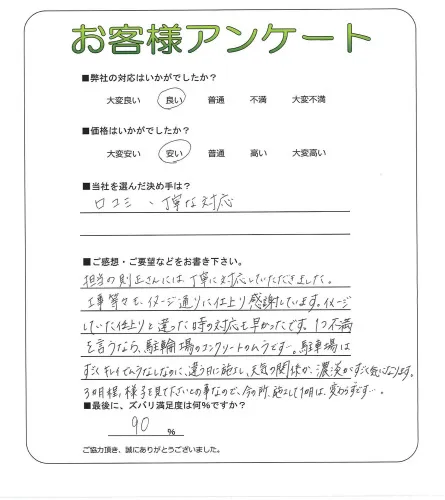 お客様アンケート
■弊社の対応はいかがでしたか?
大変良い 良い 普通 不満 大変不満
■価格はいかがでしたか?
大変安い 安い 普通 高い 大変高い
■当社を選んだ決め手は?
口コミ、丁寧な対応
■ご感想・ご要望などをお書き下さい。
担当の則正さんには、丁寧に対応していただきました。
工事等々も、イメージ通りに仕上り感謝しています。イメージ
していた仕上りと違った時の対応も早かったです。1つ不満
を言うなら、駐輪場のコンクリートのムラです…。駐車場は
すごくキレイでムラなしなのに、違う日に施工し、天気の関係か、濃淡がすごく気になります。
3ヵ月程、様子を見て下さいとの事なので、今の所、施工して1ヵ月は、変わらずです…。
■最後に、ズバリ満足度は何%ですか?
90 %
ご協力頂き、誠にありがとうございました。